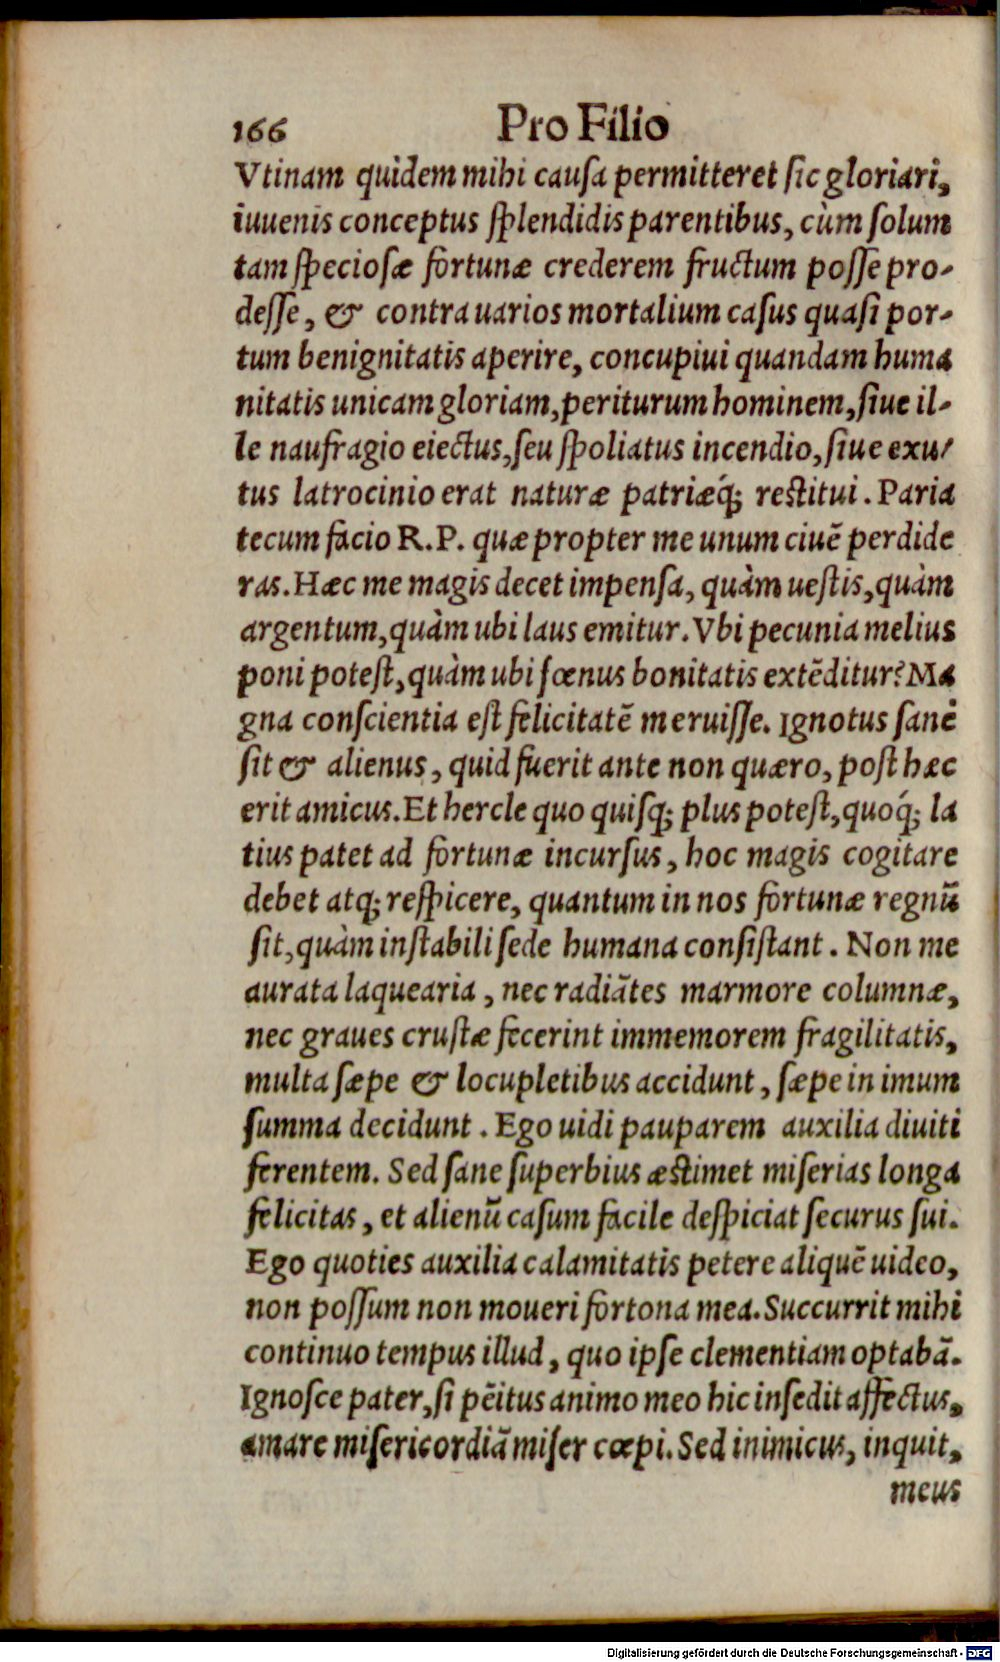 166 Pro Filio
Vtinam quidem mihi causa permitteret sic gloriari,
iuuenis conceptus splendidis parentibus, cùm solum
tam speciosæ fortunæ crederem fructum posse pro-
desse, & contra uarios mortalium casus quasi por-
tum benignitatis aperire, concupiui quandam huma
nitatis unicam gloriam, periturum hominem, siue il-
le naufragio eiectus, seu spoliatus incendio, siue exu-
tus latrocinio erat naturæ patriæq́; restitui. Paria
tecum facio R.P. quæ propter me unum ciuẽ perdide
ras. Hæc me magis decet impensa, quàm uestis, quàm
argentum, quàm ubi laus emitur. Vbi pecunia melius
poni potest, quàm ubi fœnus bonitatis extẽditur? Ma
gna conscientia est felicitatẽ meruisse. Ignotus sanè
sit & alienus, quid fuerit ante non quæro, post hæc
erit amicus. Et hercle quo quisq; plus potest, quoq́; la
tius patet ad fortunæ incursus, hoc magis cogitare
debet atq; respicere, quantum in nos fortunæ regnũ
sit, quàm instabili sede humana consistant. Non me
aurata laquearia, nec radiãtes marmore columnæ,
nec graues crustæ fecerint immemorem fragilitatis,
multa sæpe & locupletibus accidunt, sæpe in imum
summa decidunt. Ego uidi pauparem auxilia diuiti
ferentem. Sed sane superbius æstimet miserias longa
felicitas, et alienũ casum facile despiciat securus sui.
Ego quoties auxilia calamitatis petere aliquẽ uideo,
non possum non moueri fortona mea. Succurrit mihi
continuo tempus illud, quo ipse clementiam optabã.
Ignosce pater, si pẽitus animo meo hic insedit affectus,
amare misericordiã miser cœpi. Sed inimicus, inquit,
meus
Digitalisierung gefördert durch die Deutsche Forschungsgemeinschaft - DFG